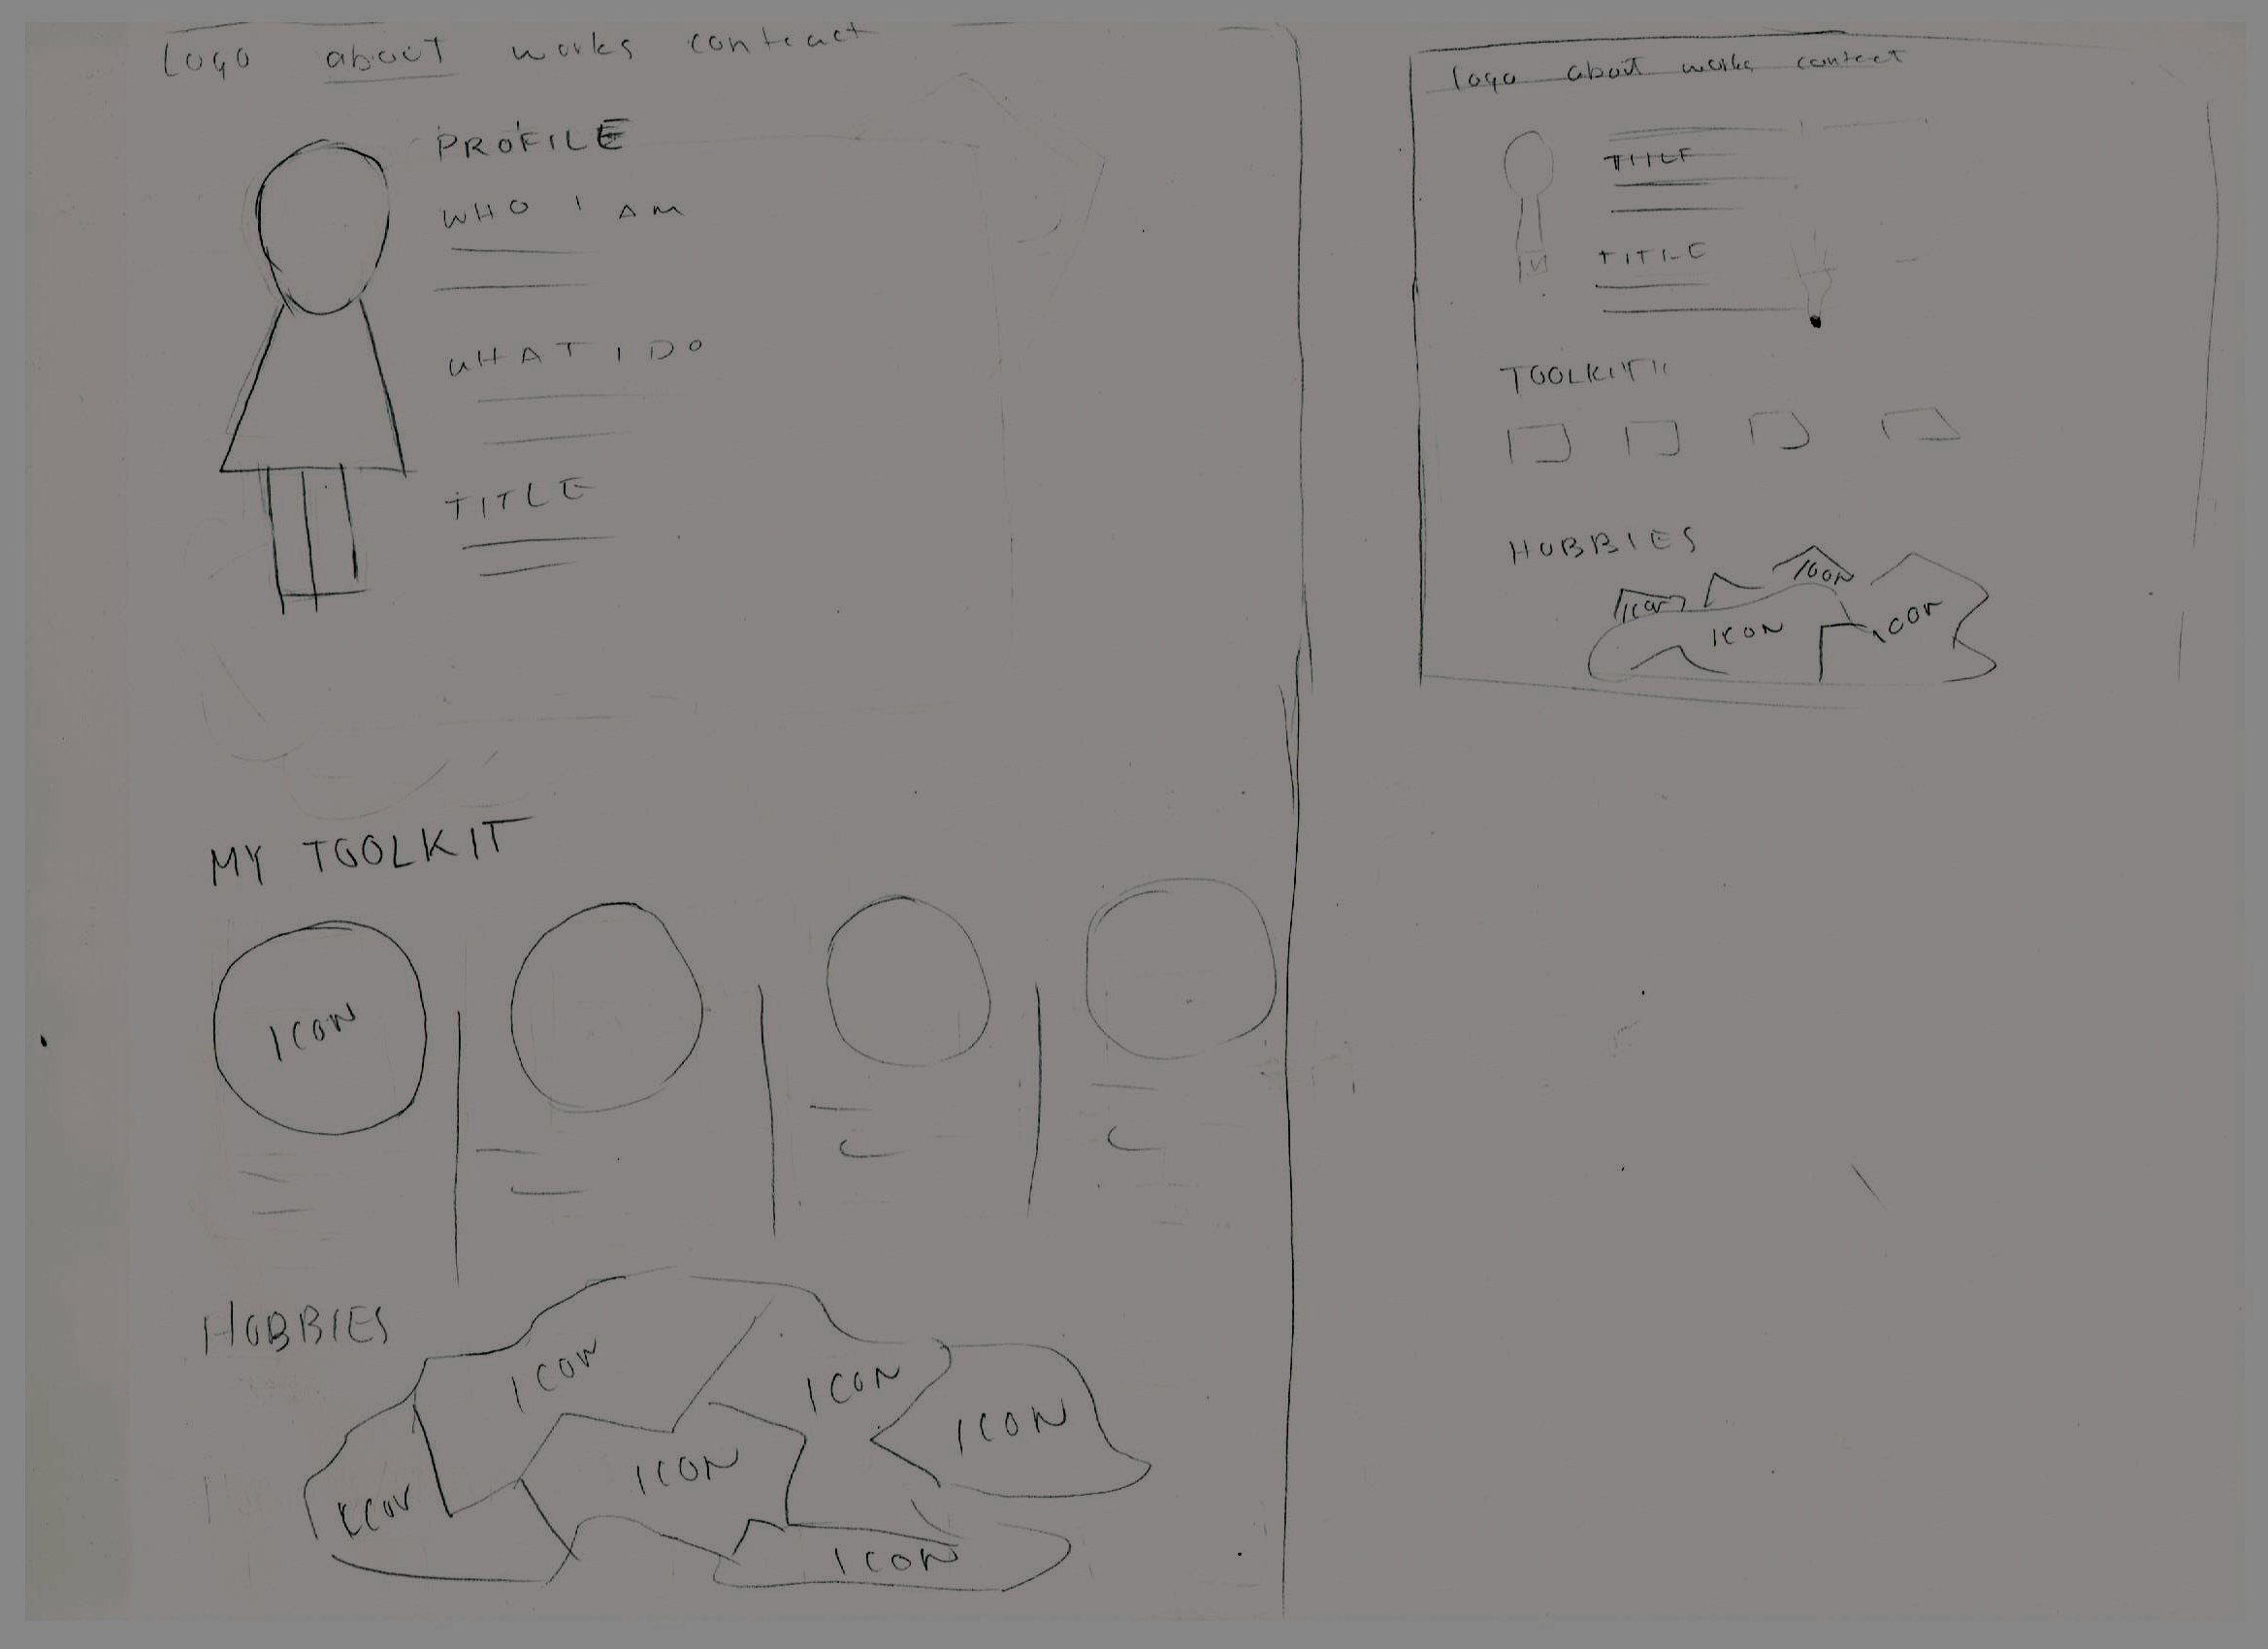 Logo about works conteact
PROFILE
WHO I AM
WHAT I DO
TITLE
MY TOOLKIT
ICON
HOBBIES
ICON
ICON
ICON
ICON
ICON
ICON
logo about works contect
TITLE
TITLE
TOOLKIT
HOBBIES
ICON
ICON
ICON
ICON